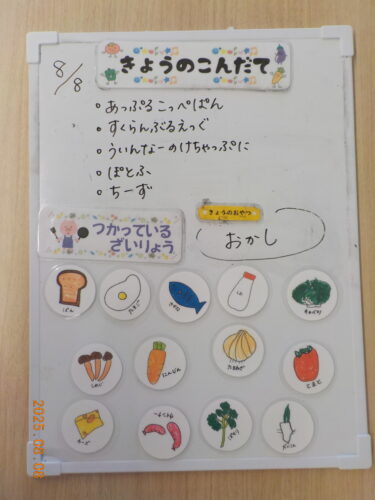 8/8
きょうのこんだて
・あっぷるこっぺぱん
・すくらんぶるえっぐ
・ういんなーのけちゃっぷに
・ぽとふ
・ちーず
つかっている
ざいりょう
きょうのおやつ
おかし
ぱん
たまご
さかな
キャベツ
しめじ
にんじん
たまねぎ
とまと
チーズ
ぱせり
2025.08.08